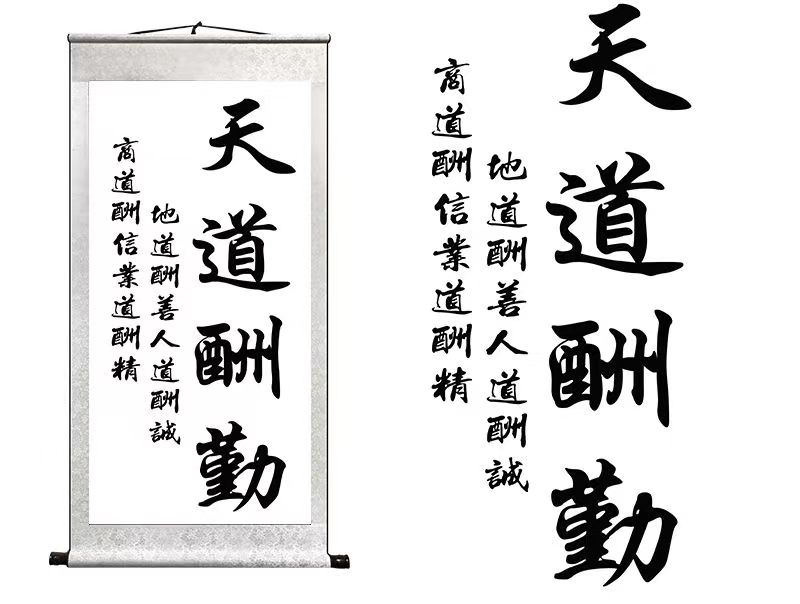 天道酬勤
地道酬善人道酬誠
商道酬信業道酬精
天道酬勤
地道酬善人道酬誠
商道酬信業道酬精